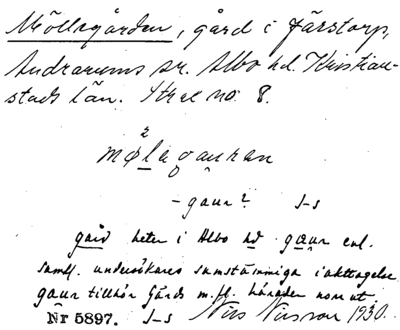 Möllegården, gård i Färstorp,
Andrarums sn. Albo hd. Kristian-
stads län. Str. no 8.
2
mølagauran
-gaur? J-s
gård heter i Albo hd gæur enl.
samtl. undersökares samstämmiga iakttagelse
gaur tillhör Gärds m.fl. härader norr ut.
Nr 5897. J-s Nils Nilsson 1930.